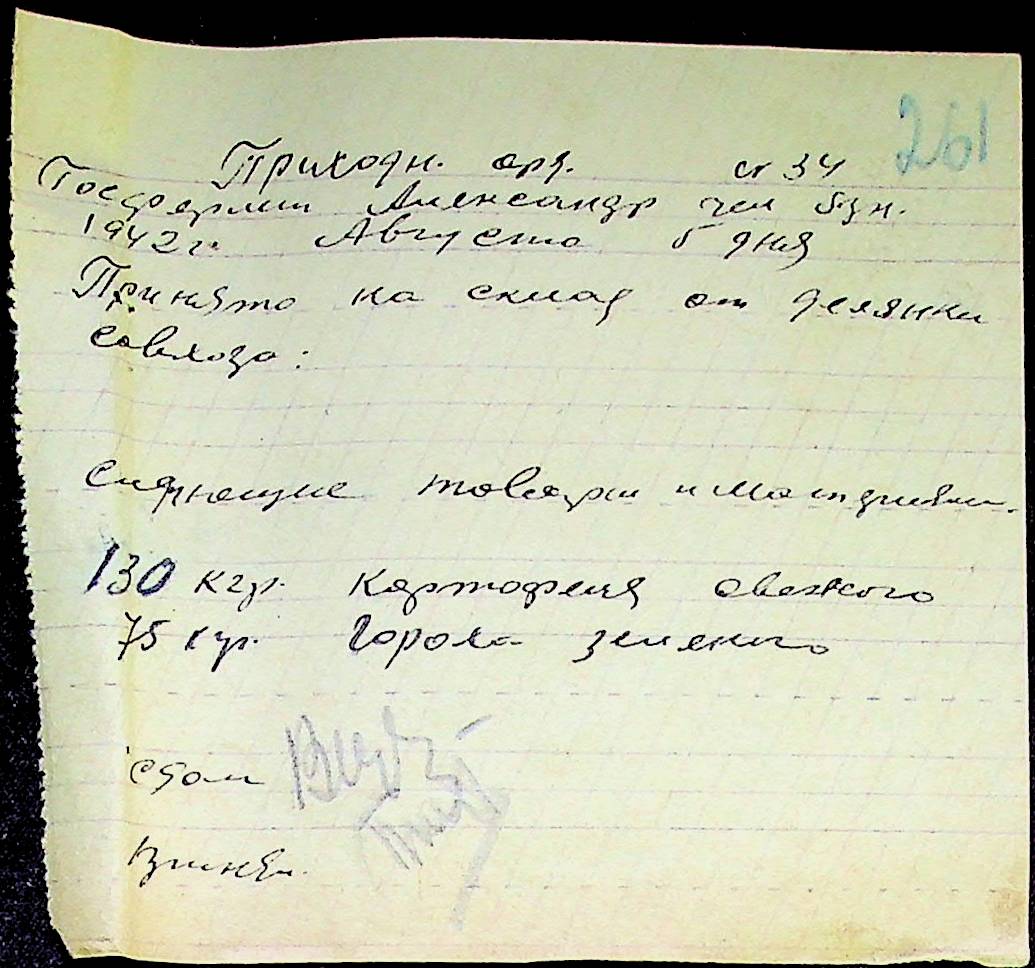 261
Приходн. орд. № 34
Госдорлет Александр
1942 г. Августа 5 дня
Принято на склад от делянки
совхоза:
следующие товары и материалы.
130 кгр. Картофеля свежого
75 кгр. Гороха зеленого
сдал
Принял